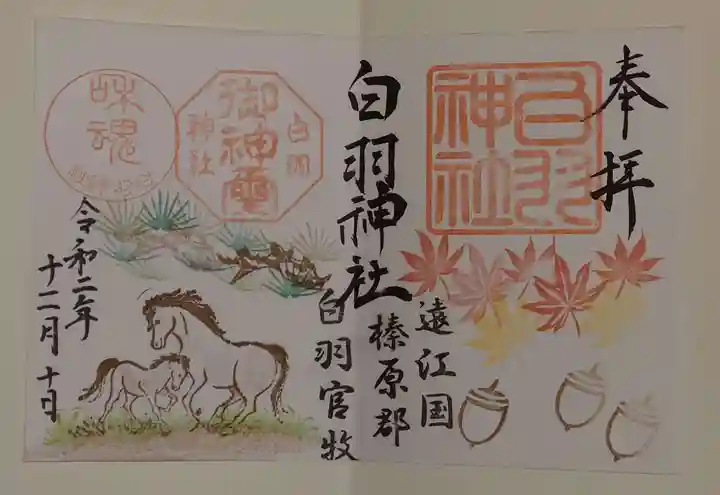 奉拝
白羽
神社
遠江国
榛原郡
白羽神社
白羽官牧
白羽
御神霊
神社
魂
令和二年
十二月十日